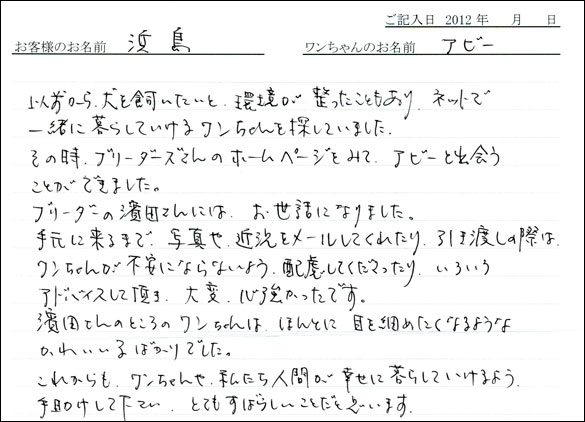 ご記入日 2012年 月 日
お客様のお名前 浜島 ワンちゃんのお名前 アビー
以前から、犬を飼いたいと、環境が整ったこともあり、ネットで
一緒に暮らしていけるワンちゃんを探していました。
その時、ブリーダーズさんのホームページをみて、アビーと出会う
ことができました。
ブリーダーの濱田さんには、お世話になりました。
手元に来るまで、写真や、近況をメールしてくれたり、引き渡しの際は、
ワンちゃんが不安にならないよう、配慮してくださったり、いろいろ
アドバイスして頂き、大変、心強かったです。
濱田さんのところのワンちゃんは、ほんとに目を細めたくなるような
かわいい子ばかりでした。
これからも、ワンちゃんや、私たち人間が幸せに暮らしていけるよう、
手助けして下さい、とてもすばらしいことだと思います。